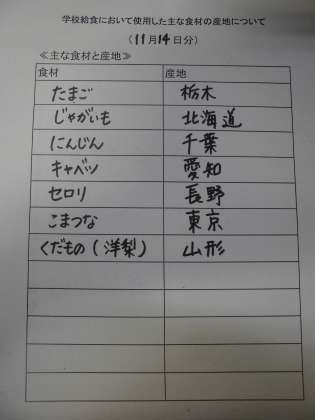 学校給食において使用した主な食材の産地について
（11月14日分）
≪主な食材と産地≫
食材 産地
たまご 栃木
じゃがいも 北海道
にんじん 千葉
キャベツ 愛知
セロリ 長野
こまつな 東京
くだもの（洋梨） 山形